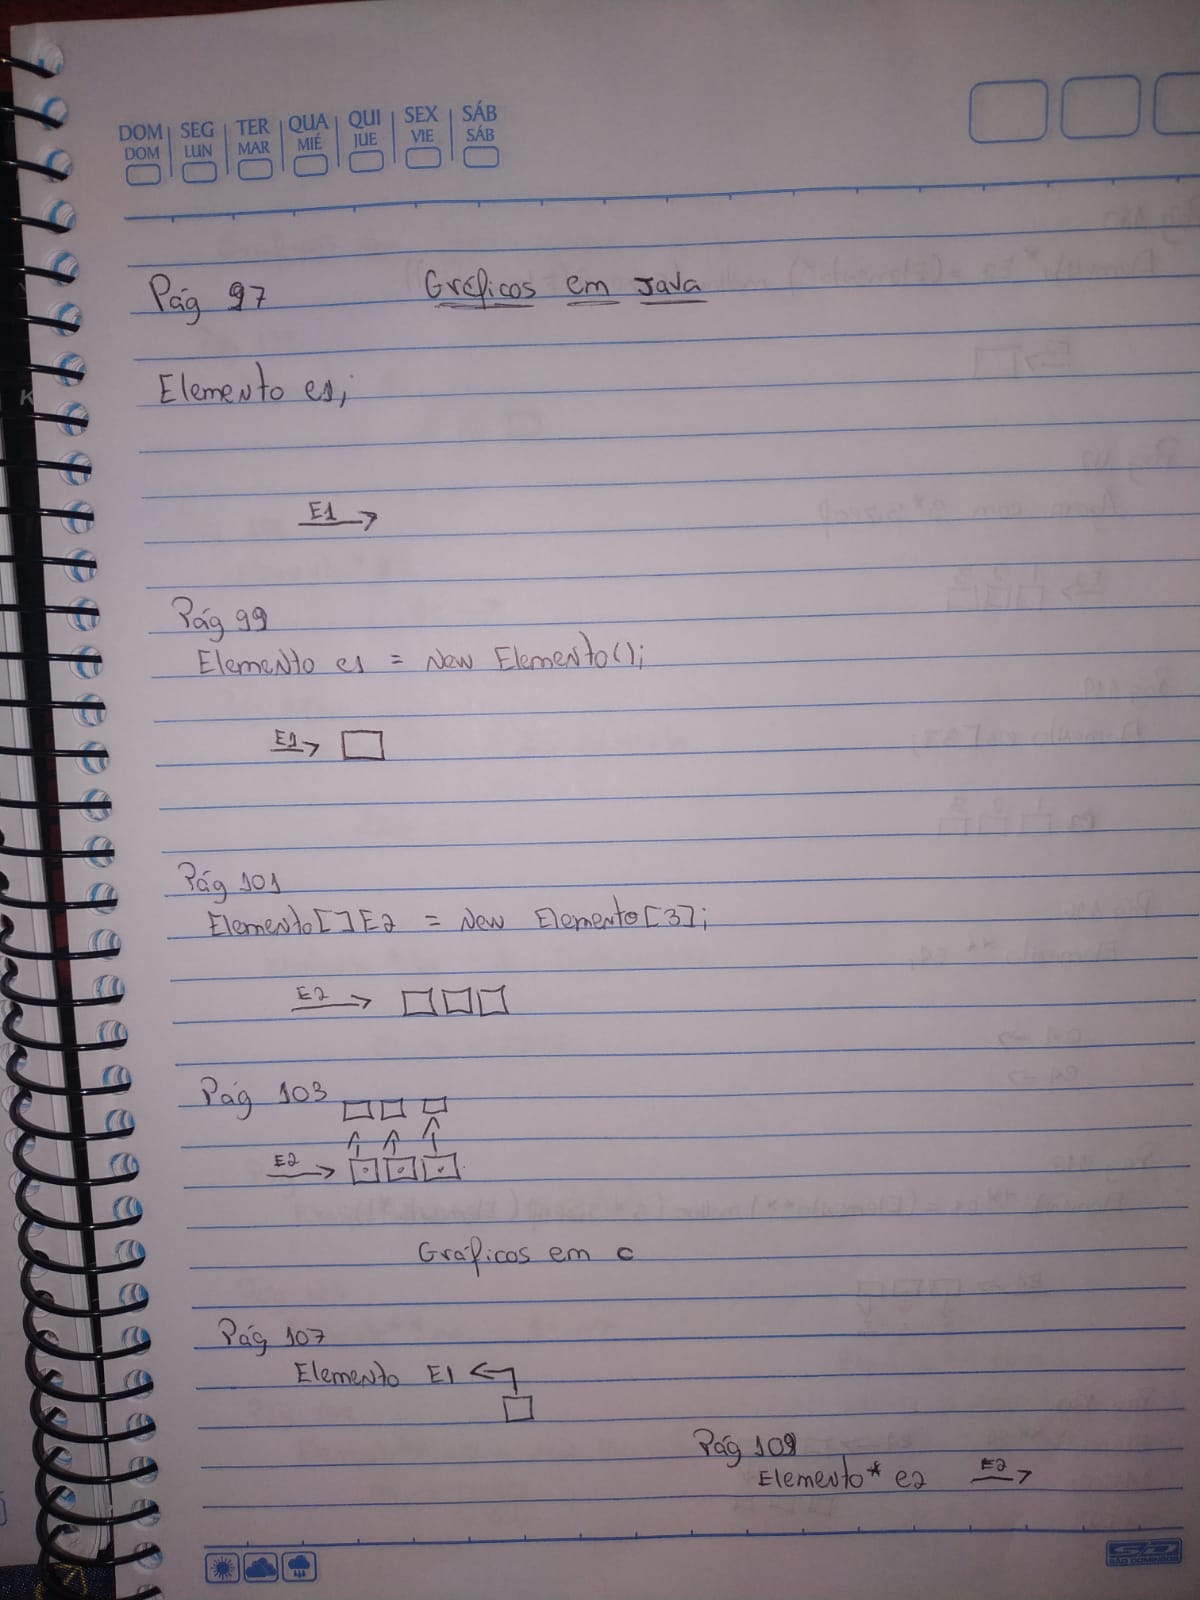 DOM SEG TER QUA QUI SEX SÁB
DOM LUN MAR MIÉ JUE VIE SÁB
Pág 97 Gráficos em Java
Elemento e1;
E1
Pág 99
Elemento e1 = New Elemento();
E1
Pág 101
Elemento[] E2 = New Elemento[3];
E2
Pág 103
E2
Gráficos em C
Pág 107
Elemento E1
Pág 109
Elemento* e2 E2
SÃO DOMINGOS